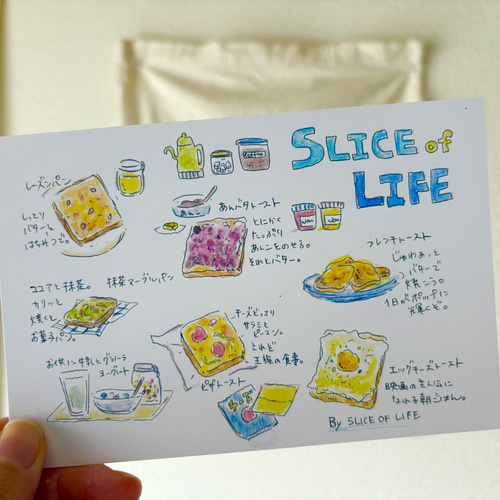 SLICE of
LIFE
レーズンパン
しっとり
バターと
はちみつで。
Coffee
あんこ
あんバタトースト
とにかく
たっぷり
あんこをのせる。
それとバター。
フレンチトースト
じゅわぁっと
バターで
焼こう。
1日の
ココアと抹茶。
抹茶マーブルパン
カリッと
焼くと
お菓子パン。
チーズどっさり
サラミと
ピーマン。
されど
王様の食事。
ピザトースト
お供に牛乳とグラノーラ
ヨーグルト
エッグチーズトースト
映画の主人公に
なれる朝ごはん。
By SLICE OF LIFE